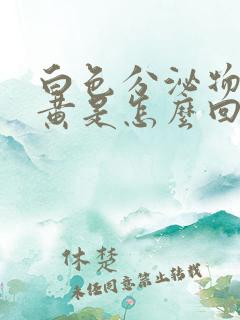 白色分泌物
黄是怎麼回
休楚
未经同意禁止转载